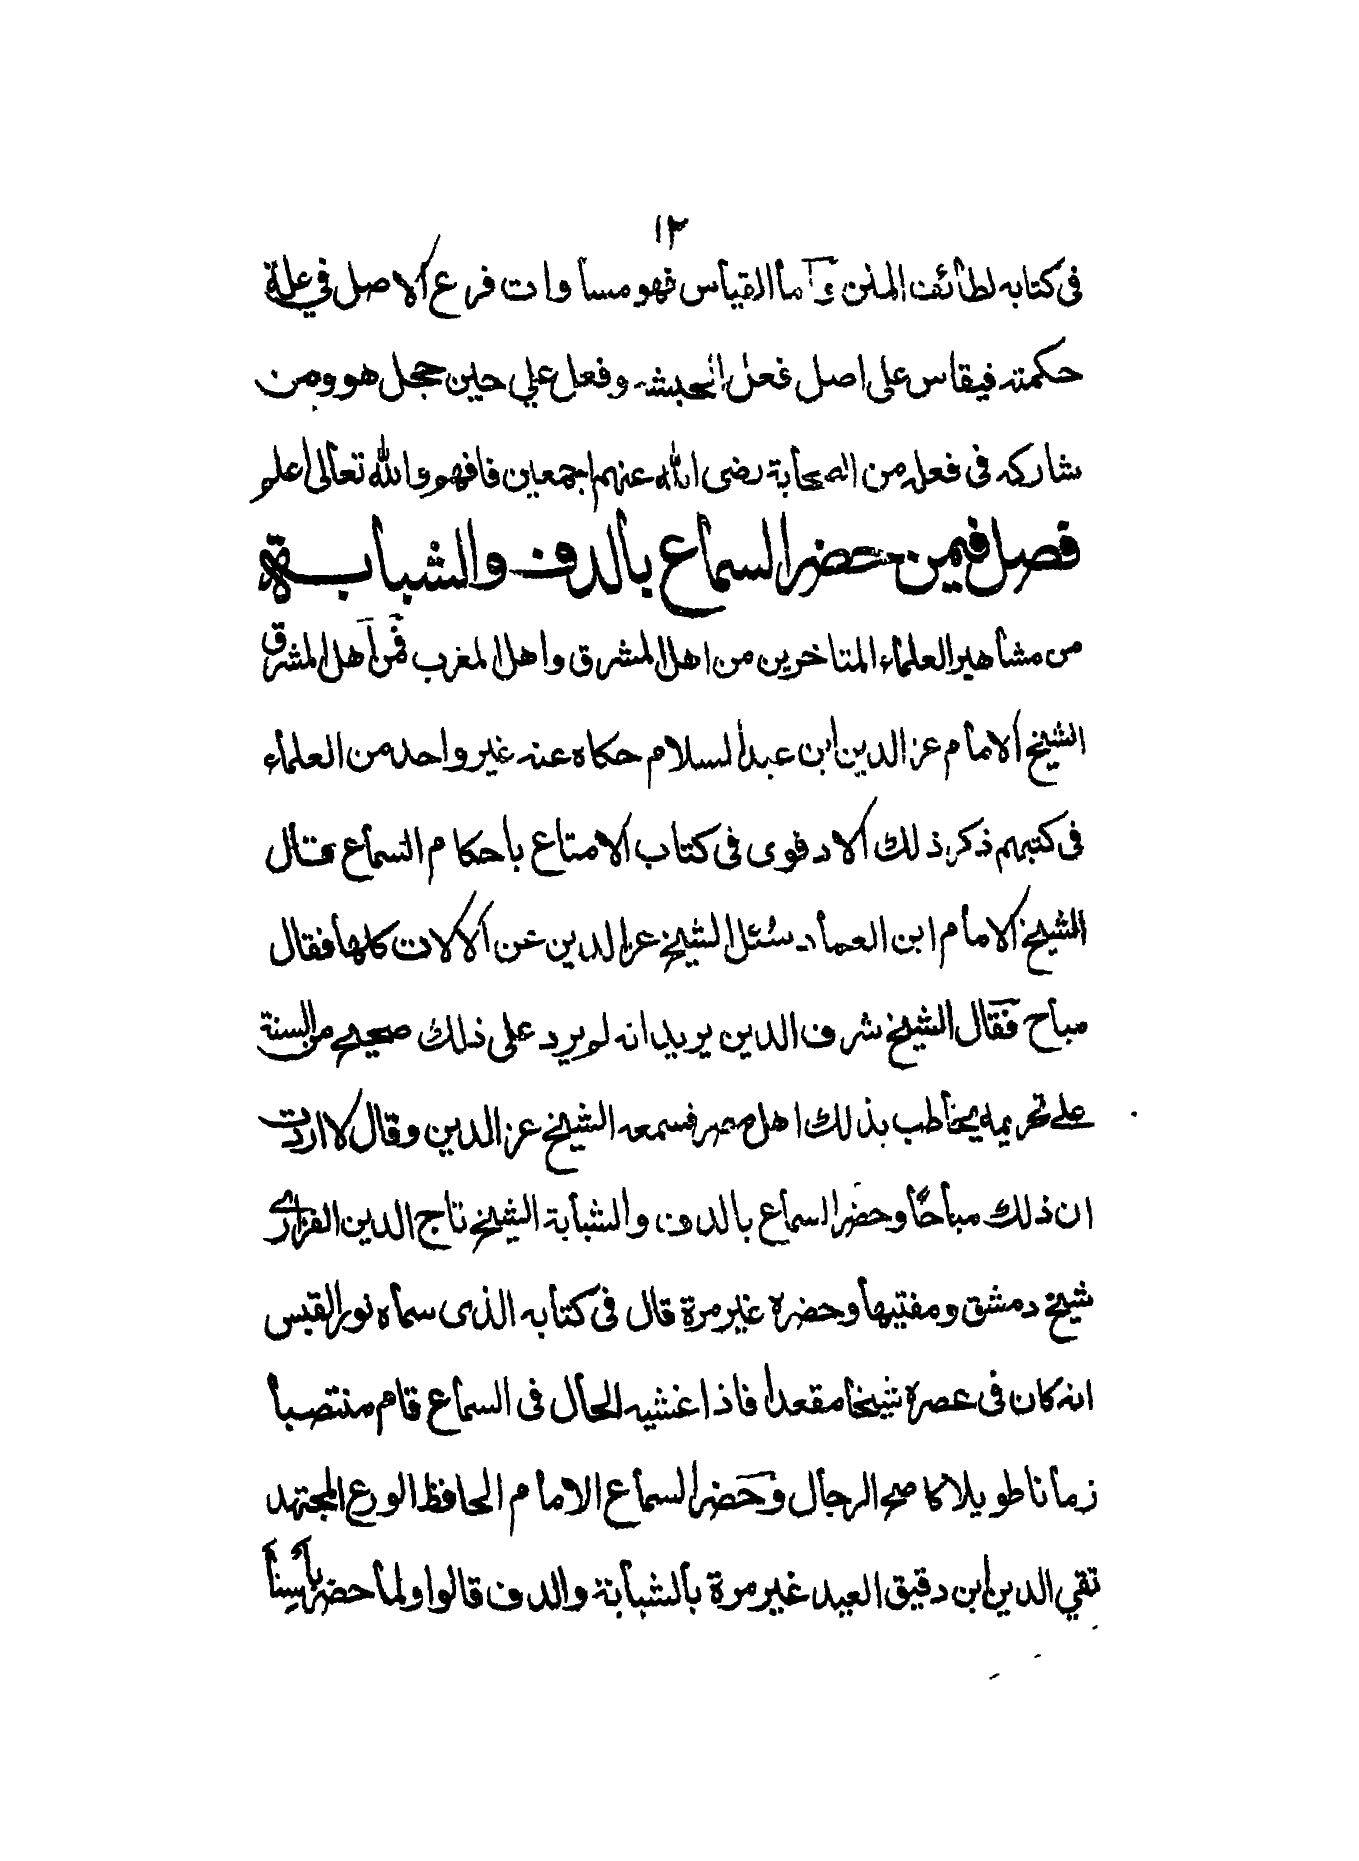 ١٣
فى كتابه لطائف المنن وأما القياس فهو مساوات فرع الاصل في علة
حكمته فيقاس على اصل فعل الحبشه وفعل علي حين حجل هو ومن
شاركه فى فعله من الصحابة رضى الله عنهم اجمعين فافهم والله تعالى اعلم
فصل فيمن حضر السماع بالدف والشبابة
من مشاهير العلماء المتاخرين من اهل المشرق واهل المغرب فمن اهل المشرق
الشيخ الامام عز الدين ابن عبد السلام حكاه عنه غير واحد من العلماء
فى كتبهم ذكر ذلك الادفوى فى كتاب الامتاع باحكام السماع فقال
الشيخ الامام ابن العماد سئل الشيخ عز الدين عن الالات كلها فقال
مباح فقال الشيخ شرف الدين يريد انه لم يرد على ذلك صحيح من السنة
على تحريمه يخاطب بذلك اهل مصر فسمعه الشيخ عز الدين وقال لا اردت
ان ذلك مباحًا وحضر السماع بالدف والشبابة الشيخ تاج الدين الفزارى
شيخ دمشق ومفتيها وحضره غير مرة قال فى كتابه الذى سماه نور القبس
انه كان فى عصره شيخا مقعدا فاذا غشيه الحال فى السماع قام منتصبا
زمانا طويلا كاصح الرجال وحضر السماع الامام الحافظ الورع المجتهد
تقي الدين ابن دقيق العيد غير مرة بالشبابة والدف قالوا ولما حضر